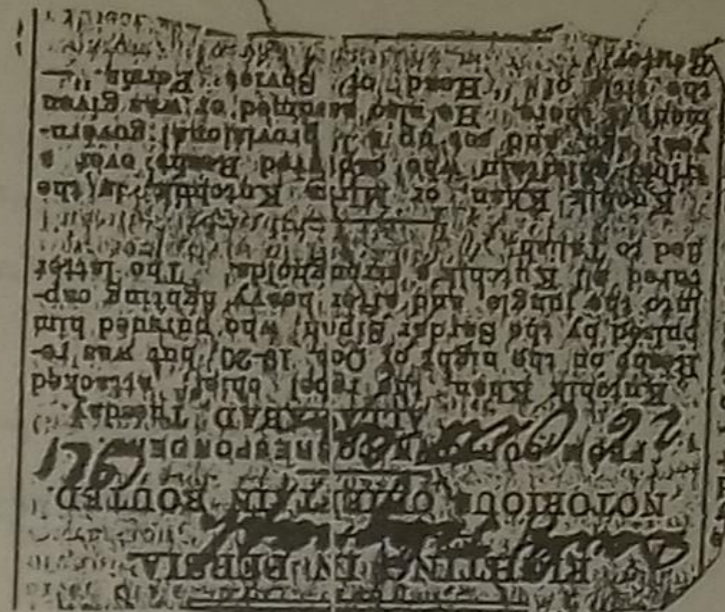 FIGHTING IN PERSIA
NOTORIOUS CHIEFTAIN ROUTED.
1921
FROM OUR OWN CORRESPONDENT.
26 Oct
ALLAHABAD, Tuesday.
Kutchik Khan, the rebel chief, attacked
on the night of Oct. 19-20, but was re-
pulsed by the Sardar Sipah, who pursued him
into the jungle, and after heavy fighting cap-
tured all Kutchik's strongholds. The latter
fled to
Kuchik Khan, or Mirza Kutchik, is the
tribal chieftain who captured Resht over a
year ago and set up a provisional govern-
ment there. He also assumed or was given
the title of "Head of Soviet Persia."—
Reuter.